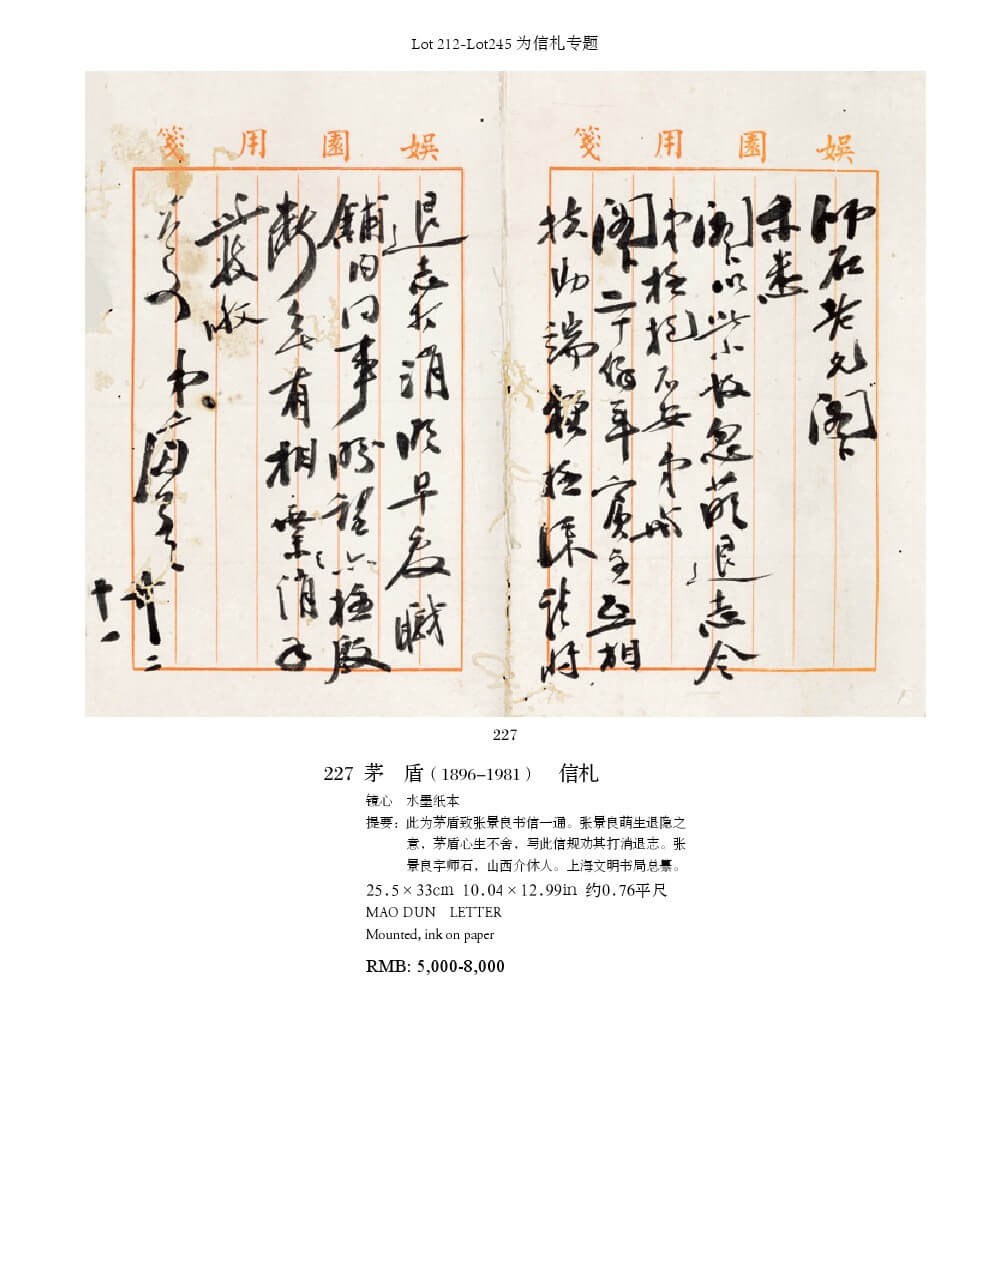 Lot 212-Lot245 为信札专题
娱園用箋
師石老兄閣下
来悉
閣下以柴 故忽萌退志令
弟極抱不安弟與
閣下二十馀年賓主互相
扶助端賴極深請將
娱園用箋
退志打消順早复職
鋪内同事盼望亦極殷
斷無有相棄消 
此敬頌
大安 弟
廿二
十一
227
227 茅 盾（1896-1981） 信札
镜心 水墨纸本
提要：此为茅盾致张景良书信一通。张景良萌生退隐之
意，茅盾心生不舍，写此信规劝其打消退志。张
景良字师石，山西介休人。上海文明书局总纂。
25.5×33cm 10.04×12.99in 约0.76平尺
MAO DUN LETTER
Mounted, ink on paper
RMB: 5,000-8,000